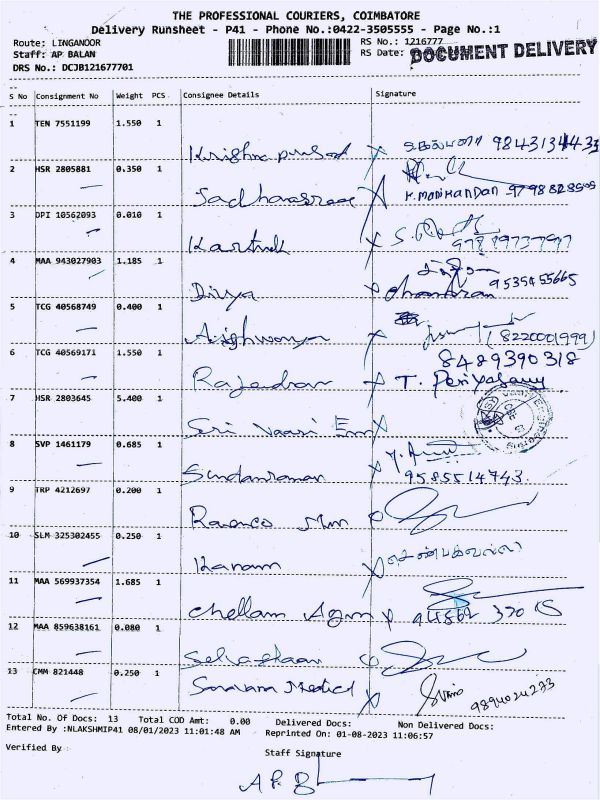 THE PROFESSIONAL COURIERS, COIMBATORE
Delivery Runsheet - P41 - Phone No.:0422-3505555 - Page No.:1
Route: LINGANOOR
Staff: AP BALAN
DRS No.: DCJB121677701
RS No.: 1216777
RS Date:
DOCUMENT DELIVERY
S No Consignment No Weight PCS Consignee Details Signature
1 TEN 7551199 1.550 1
Krishna prasad
2 HSR 2805881 0.350 1
K. MANIKANDAN
3 DPI 10562093 0.010 1
Karthik
4 MAA 943027903 1.185 1
Divya 9535455665
5 TCG 40568749 0.400 1
Aishwarya (8220001999)
6 TCG 40569171 1.550 1
8489390318
Rajendran T. Periyasamy
7 HSR 2803645 5.400 1
Sri Vaari Em
8 SVP 1461179 0.685 1
Sundaraman 9585514743
9 TRP 4212697 0.200 1
10 SLM 325302455 0.250 1
Kanam செண்பகவல்லி
11 MAA 569937354 1.685 1
Chellam Agm
12 MAA 859638161 0.080 1
13 CMM 821448 0.250 1
Saravana Medical 9894024233
Total No. Of Docs: 13 Total COD Amt: 0.00 Delivered Docs: Non Delivered Docs:
Entered By :NLAKSHMIP41 08/01/2023 11:01:48 AM Reprinted On: 01-08-2023 11:06:57
Verified By
Staff Signature